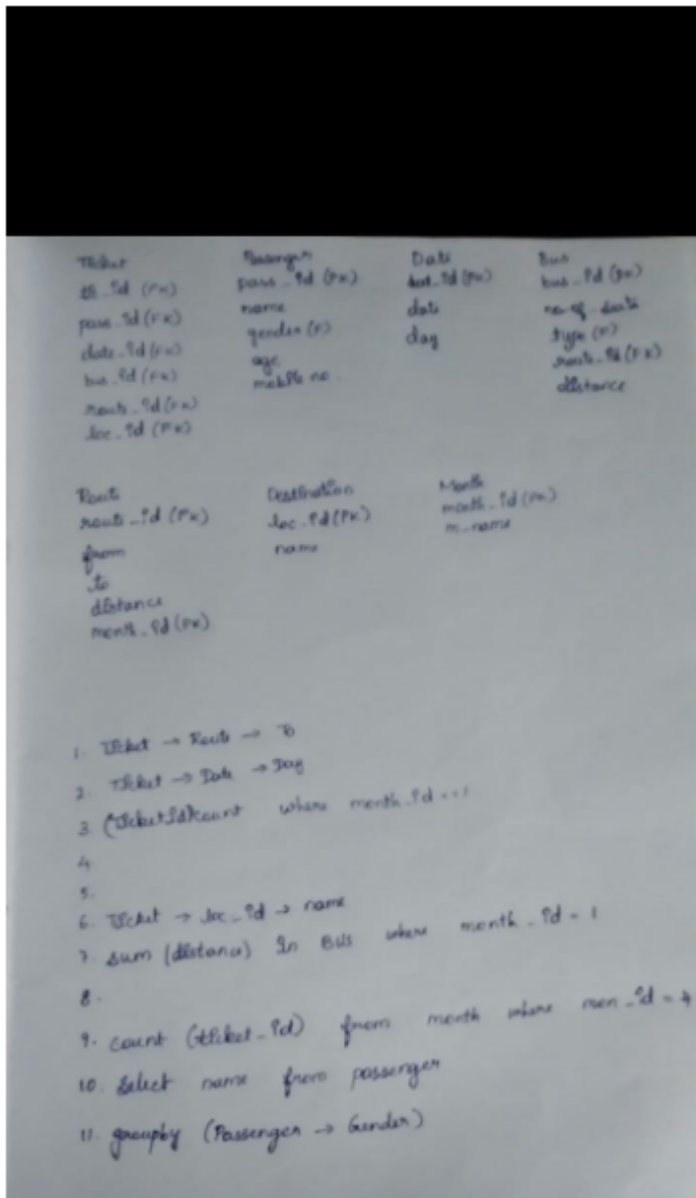 Ticket
tk_id (PK)
pass_id (FK)
date_id (FK)
bus_id (FK)
route_id (FK)
loc_id (FK)
Passenger
pass_id (PK)
name
gender (F)
age
mobile no.
Date
dat_id (PK)
date
day
Bus
bus_id (PK)
no_of_seats
type (F)
route_id (FK)
distance
Route
route_id (PK)
from
to
distance
month_id (FK)
Destination
loc_id (PK)
name
Month
month_id (PK)
m_name
1. Ticket → Route → To
2. Ticket → Date → Day
3. (TicketId)count where month_id == 1
4.
5.
6. Ticket → loc_id → name
7. sum (distance) In BUS where month_id = 1
8.
9. count (ticket_id) from month where mon_id = 4
10. select name from passenger
11. groupby (Passenger → Gender)